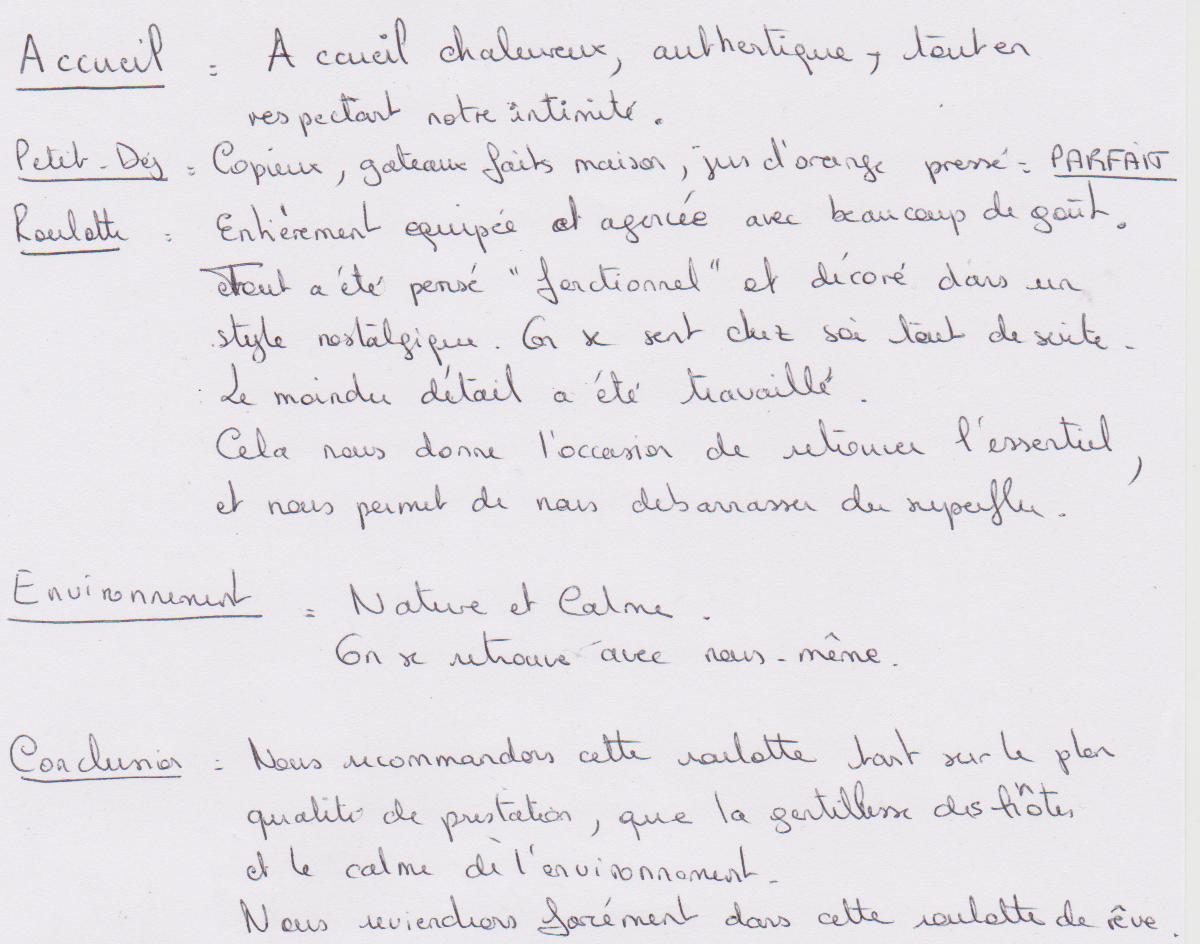 Accueil : Accueil chaleureux, authentique, tout en
respectant notre intimité.
Petit-Dej : Copieux, gateaux faits maison, jus d'orange pressé = PARFAIT
Roulotte : Entièrement equipée et agencée avec beaucoup de goût.
Tout a été pensé "fonctionnel" et décoré dans un
style nostalgique. On se sent chez soi tout de suite.
Le moindre détail a été travaillé.
Cela nous donne l'occasion de retrouver l'essentiel,
et nous permet de nous debarrasser du superflu.
Environnement : Nature et Calme.
On se retrouve avec nous-même.
Conclusion : Nous recommandons cette roulotte tant sur le plan
qualité de prestation, que la gentillesse des hôtes
et le calme de l'environnement.
Nous reviendrons forcément dans cette roulotte de rêve.